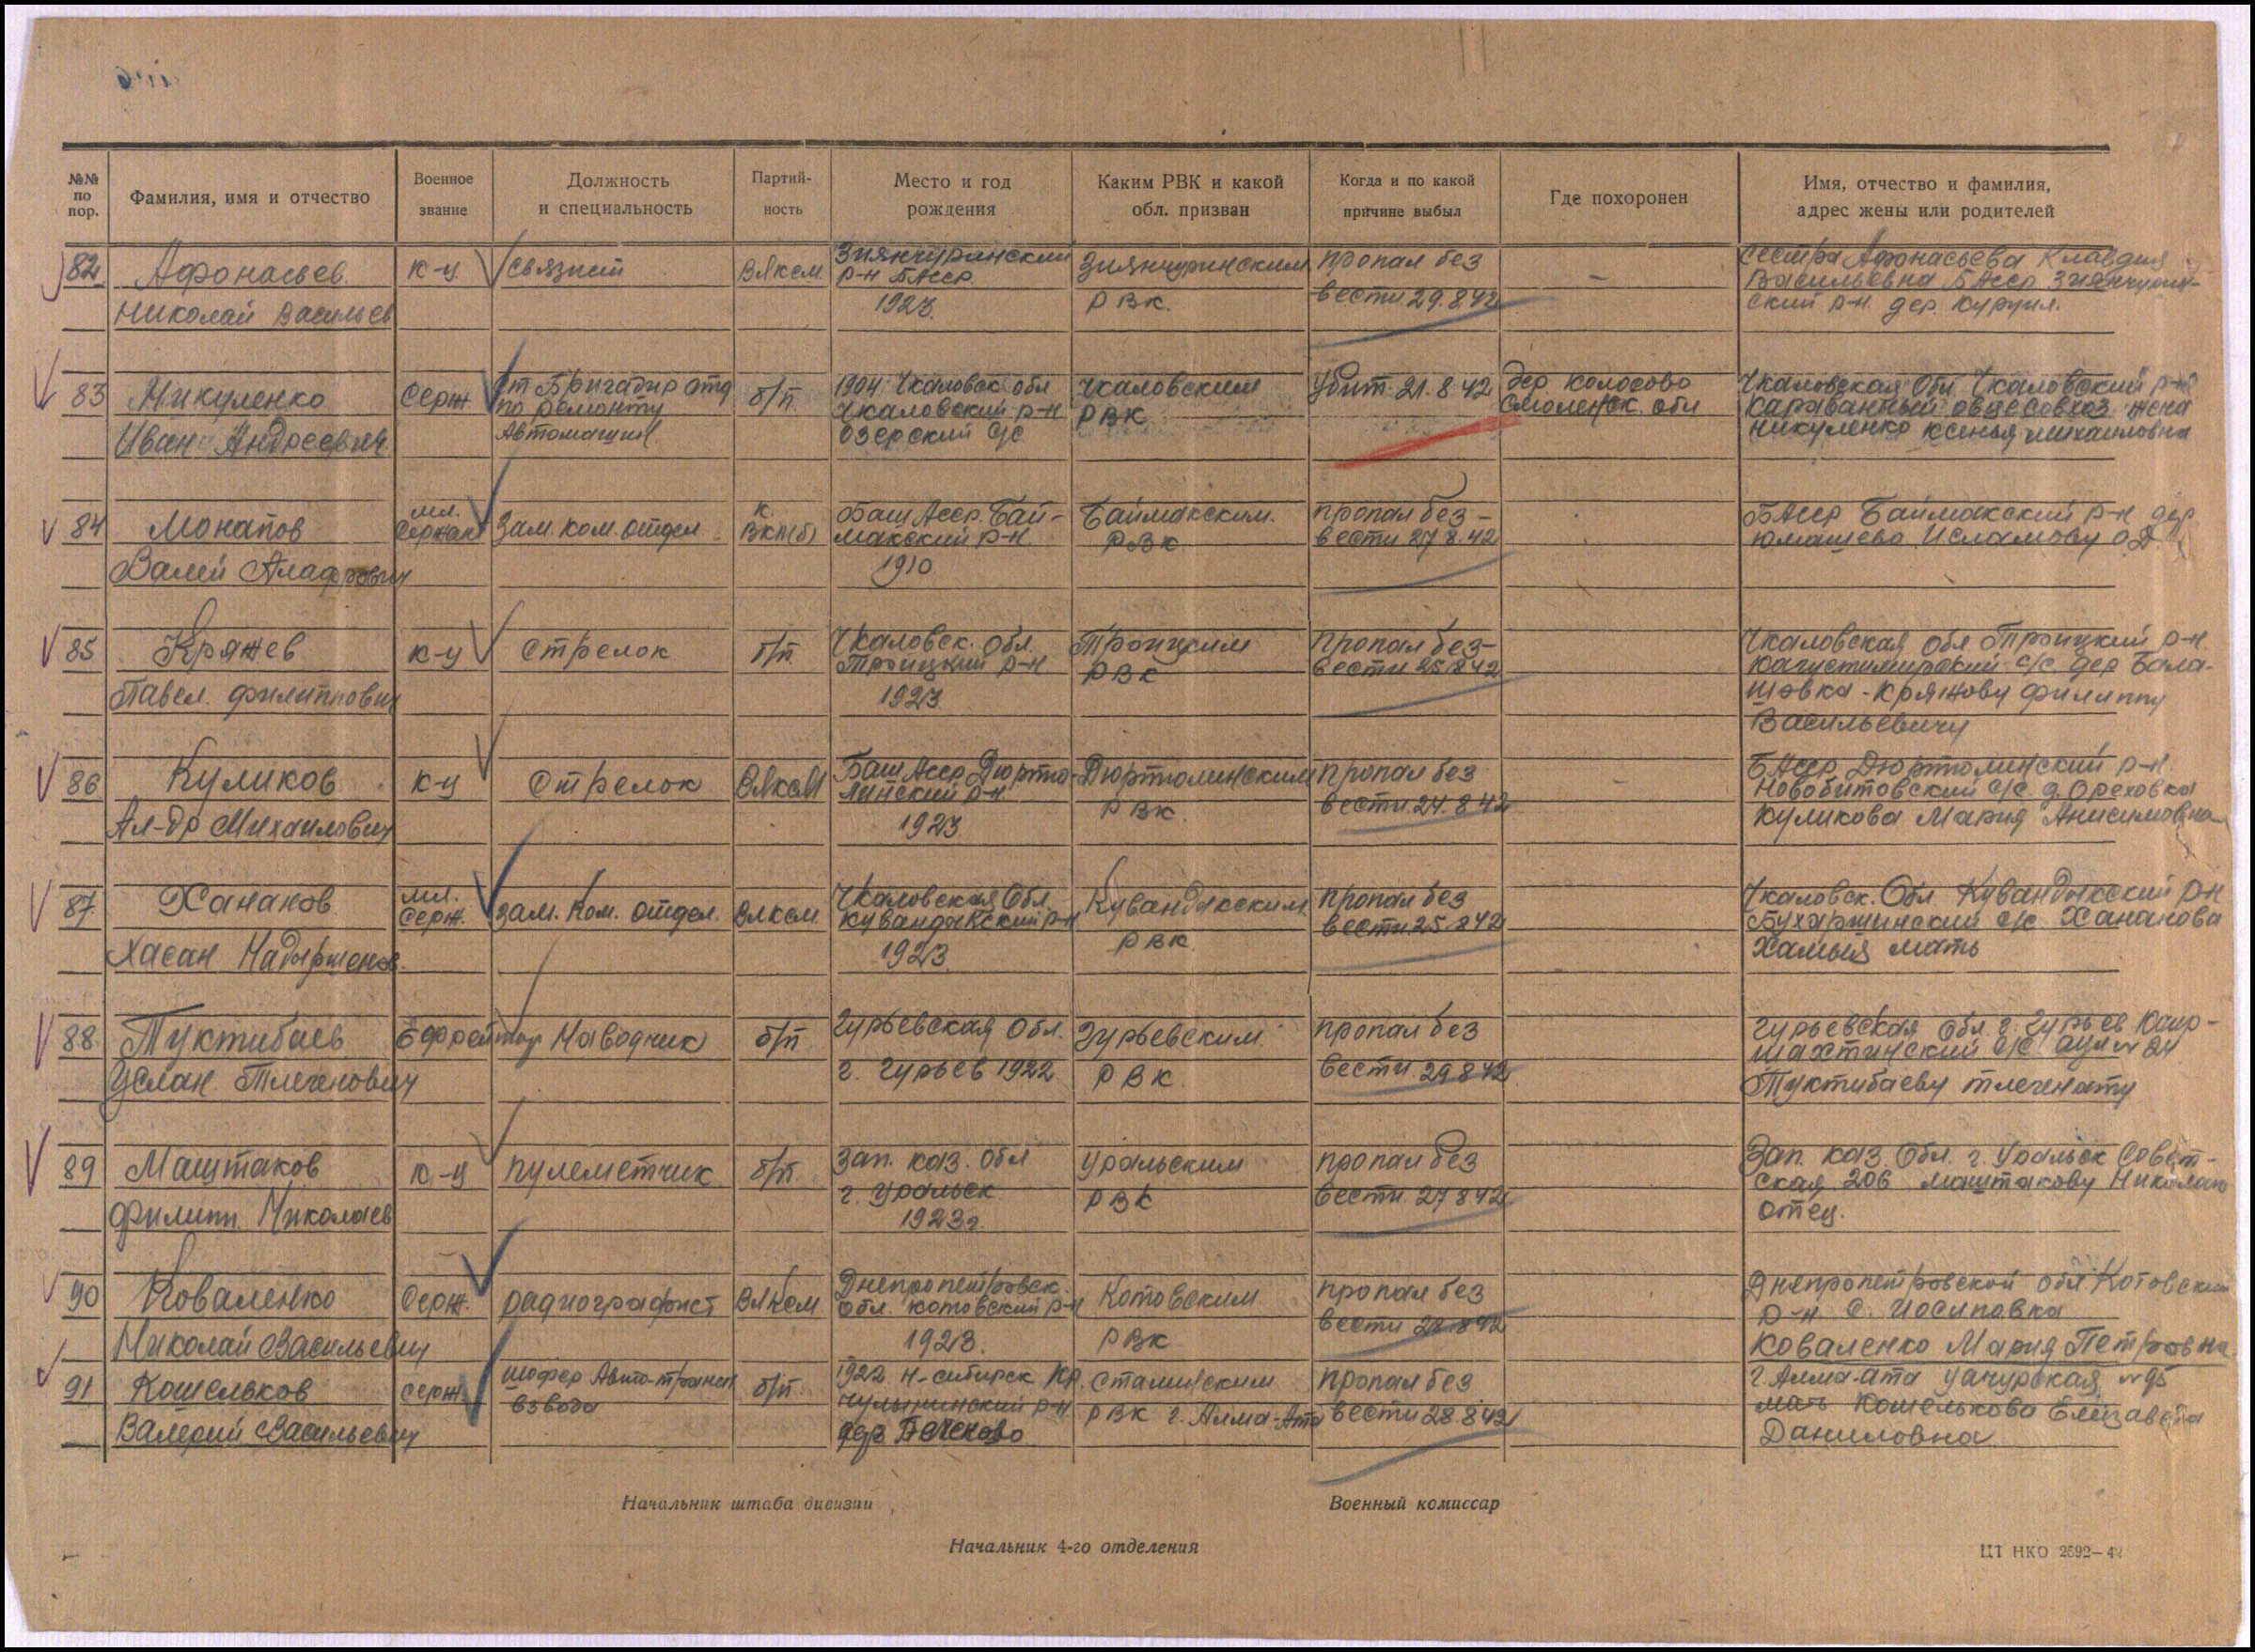 №№ по пор.
Фамилия, имя и отчество
Военное звание
Должность и специальность
Партий- ность
Место и год рождения
Каким РВК и какой обл. призван
Когда и по какой причине выбыл
Где похоронен
Имя, отчество и фамилия, адрес жены или родителей
82 Афонасьев к-ц связной ВЛКСМ Зиянчуринский р-н БАССР Зиянчуринским пропал без — сестра Афонасьева Клавдия
Николай Васильев 1923 РВК. вести 29.8.42 Васильевна БАССР Зиянчурин-
ский р-н дер.
83 Никуленко Серж Ст Бригадир отд б/п. 1904 Чкаловск обл Чкаловским Убит 21.8.42 дер Колосово Чкаловская Обл Чкаловский р-н
по ремонту Чкаловский р-н РВК Смоленск. обл Караванный овцесовхоз жена
Иван Андреевич Автомашин Озерский с/с Никуленко Ксенья Михаиловна
84 Монапов мл. Сержант Зам. ком. отдел к. ВКП(б) Баш Асср. Бай- Баймакским. пропал без — БАССР Баймакский р-н дер.
макский р-н РВК вести 27.8.42 Юмашево Исламову
Валей 1910
85 Кряжев к-ц стрелок б/п. Чкаловск. Обл. Троицким Пропал без- Чкаловская обл Троицкий р-н
Троицкий р-н РВК вести 25.8.42 с/с дер Бала-
Павел Филиппович 1923 шовка - Кряжову Филиппу
Васильевичу
86 Куликов к-ц стрелок ВЛКСМ Баш Асср Дюртю- Дюртюлинским Пропал без — БАССР Дюртюлинский р-н
линский р-н РВК вести 24.8.42 Новобитовский с/с д. Ореховка
Ал-др Михаилович 1923 Куликова Мария Анисимовна
87 Хананов мл. серж. зам. Ком. отдел. ВЛКСМ Чкаловская Обл. Кувандыкским Пропал без Чкаловск. Обл Кувандыкский р-н
Кувандыкский р-н РВК вести 25.8.42 с/с Хананова
Хасан 1923 мать
88 Туктибаев Ефрейтор Наводчик б/п Гурьевская Обл. Гурьевским. пропал без Гурьевская Обл. г. Гурьев
г. Гурьев 1922 РВК вести 29.8.42 с/с аул № 24
Услан Тлегенович Туктибаеву
89 Маштаков к-ц пулеметчик б/п. Зап. Каз. Обл Уральским пропал без Зап. Каз. Обл. г. Уральск Совет-
г. Уральск РВК вести 27.8.42 ская 206 Маштакову Николаю
Филипп Николаев 1923 г. отец.
90 Коваленко Серж. радиографист ВЛКСМ Днепропетровск. Котовским пропал без Днепропетровской обл. Котовский
обл. Котовский р-н РВК вести 28.8.42 р-н с. Иосиповка
Николай Васильевич 1923. Коваленко Мария Петровна
91 Кошельков серж. шофер Авто-трансп б/п. 1922 Н-сибирск Кр. Сталинским Пропал без г. Алма-Ата № 95
взвода р-н РВК г. Алма-Ата вести 28.8.42 мать Кошелькова Елизавета
Валерий Васильевич дер. Даниловна
Начальник штаба дивизии
Военный комиссар
Начальник 4-го отделения
ЦТ НКО 2592—42